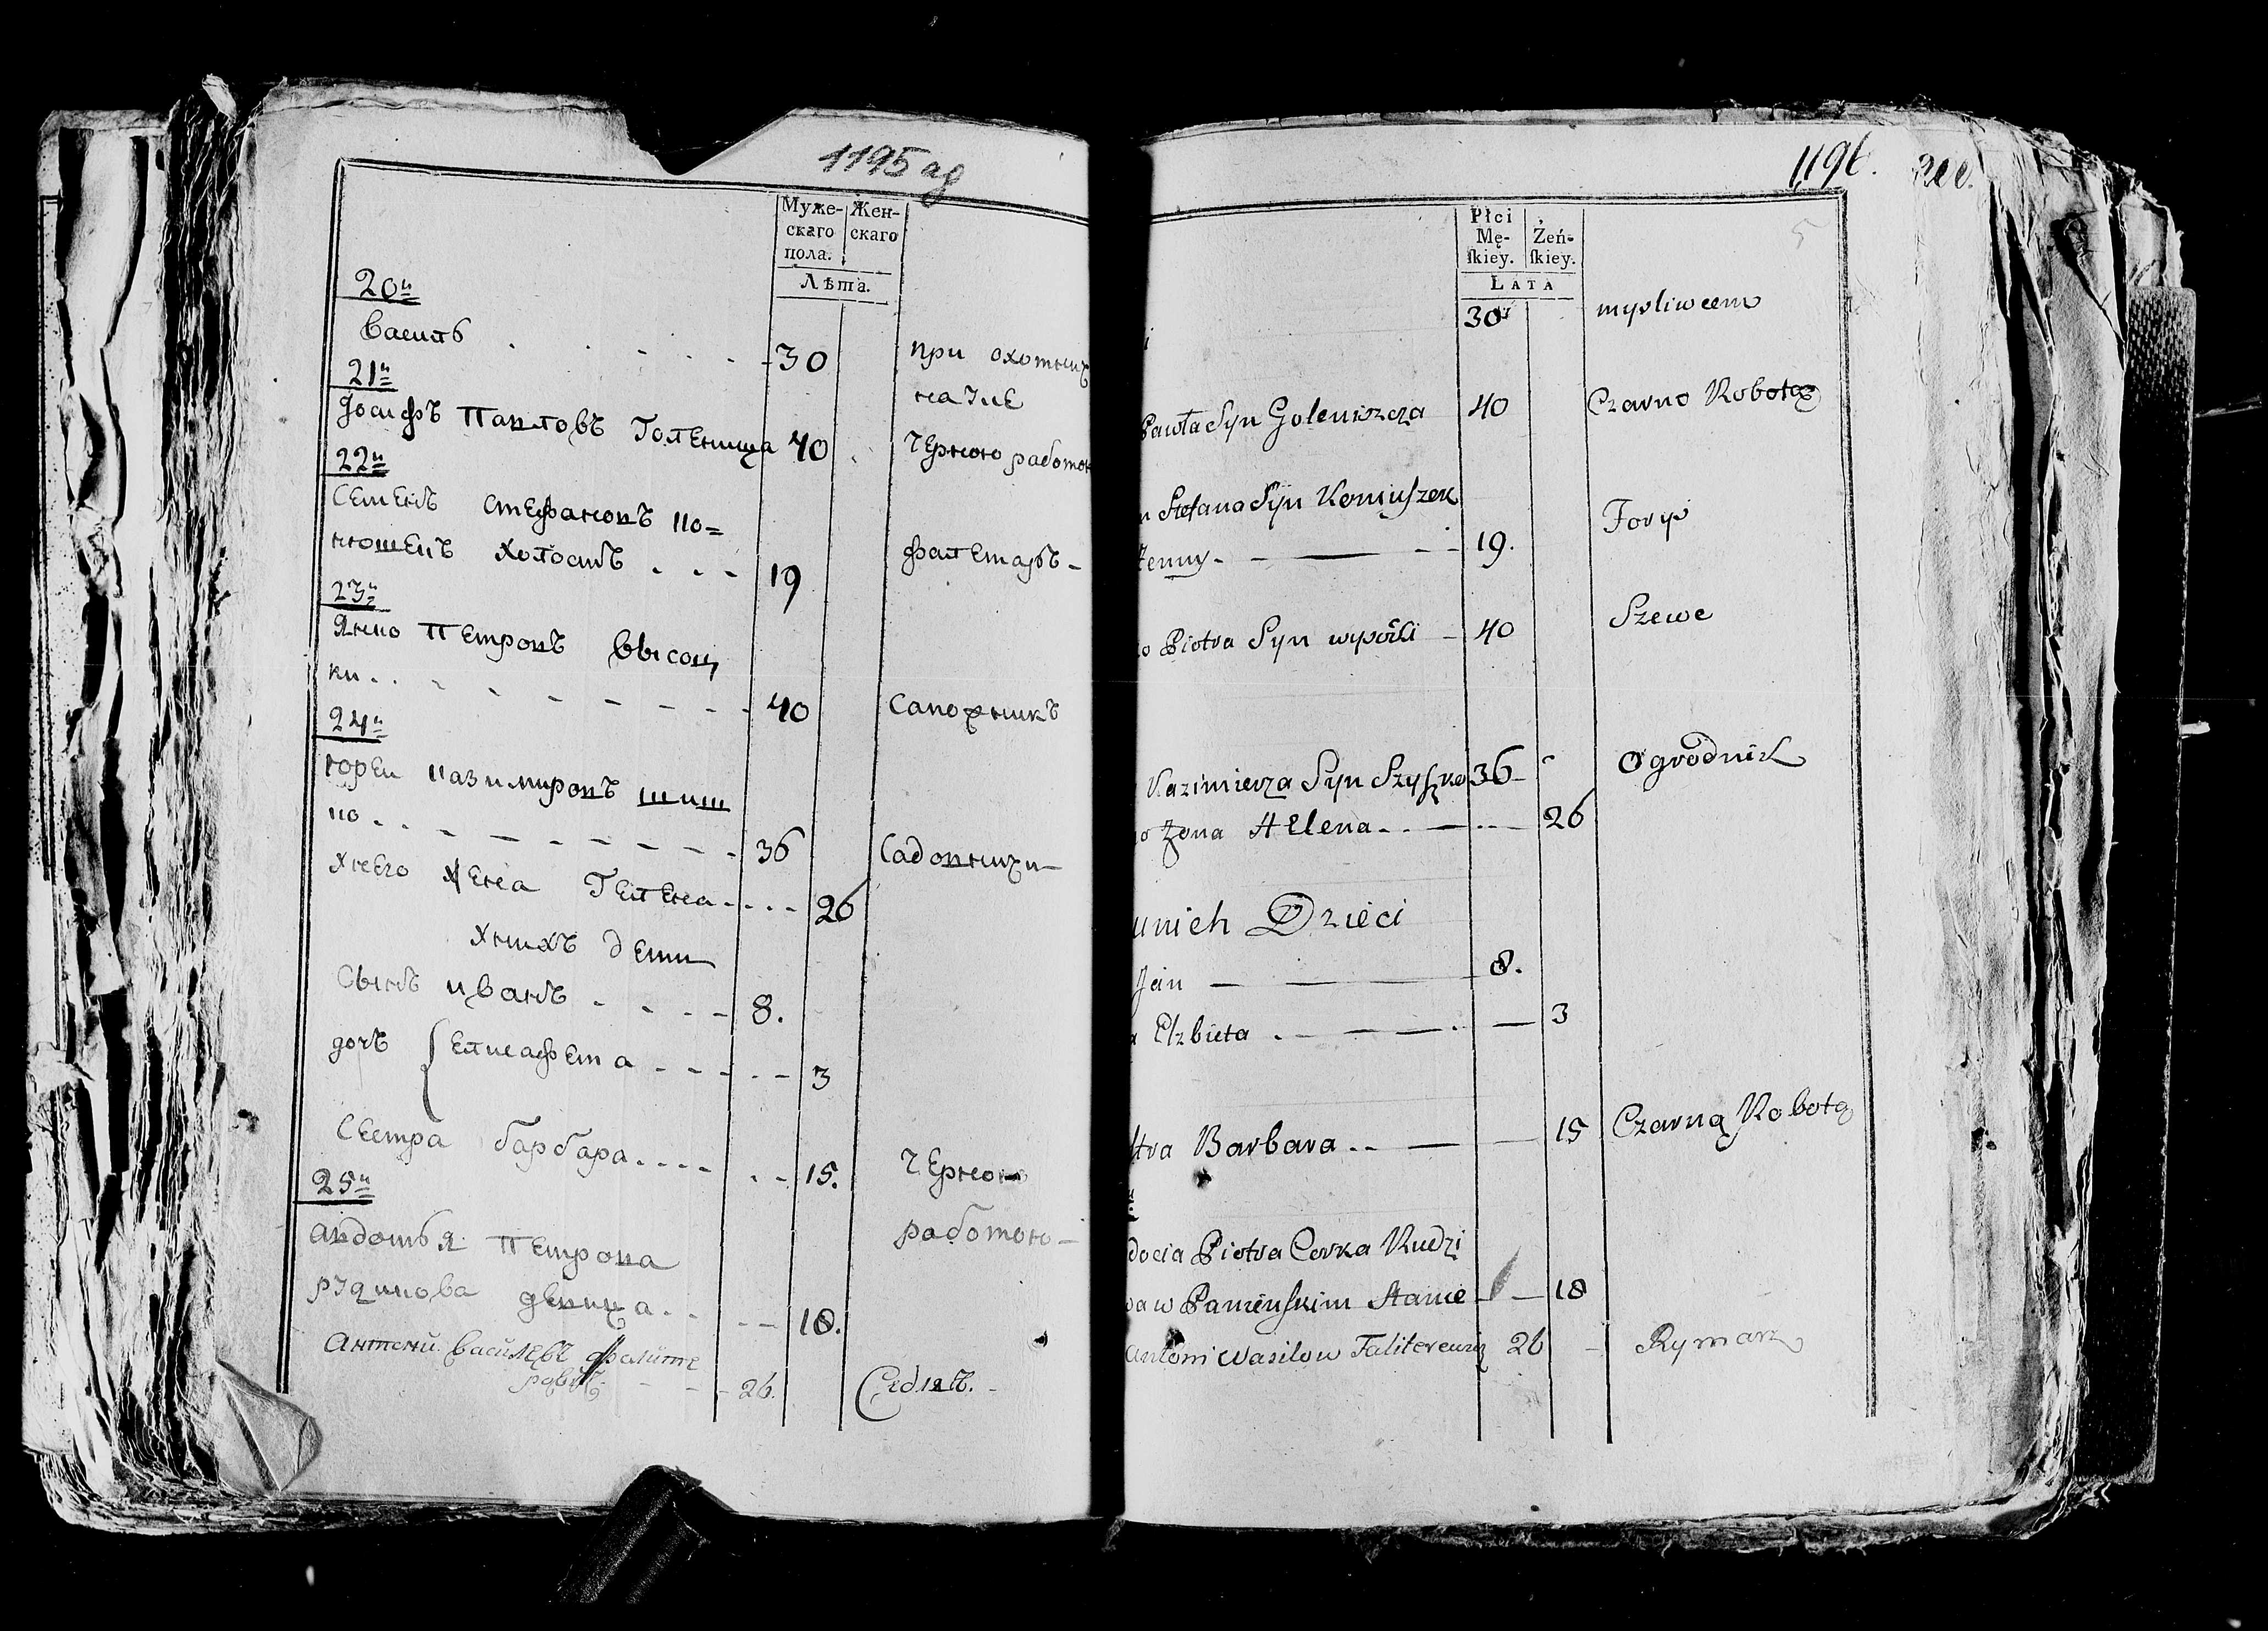 1195 ag
Муже- Жен-
скаго скаго
пола.
Лѣта.
20й
Василь 30 при охотниц
21й
Іосифъ Павловъ Голенища 40 черною работою
22й
Семенъ Стефановъ Ко=
нюшецъ холостъ . . . 19 фалетаръ -
23й
Янко Петровъ Высоц
ки . . 40 Сапожникъ
24й
Юреи Казимировъ Шиш
ко . . 36 Садовничи
У него жена Гелена . . . 26
У нихъ дети
Сынъ Иванъ 8.
дочь Елисафета 3
Сестра Барбара . . . . 15. черною
25й
работою -
Авдотья Петрова
девица . . 18.
Антони Василевъ Фалите
ровичъ 26. Седляръ. -
1196.
5
Płci
Mę- Żeń-
skiey. skiey.
LATA
30 mysliwcem
Pawła Syn Goleniszcza 40 Czarno Robotą
Stefana Syn Koniuszek
żenny - 19. Forys
o Piotra Syn wysocki - 40 Szewc
Kazimierza Syn Szyszko 36 Ogrodnik
o Żona Helena 26
unich Dzieci
Jan 8.
a Elzbieta 3
stra Barbara 15 Czarną Robotą
docia Piotra Corka Rudzi
wa w Panieńskim Stanie 18
Antoni Wasilow Faliterewicz 26 Rymarz